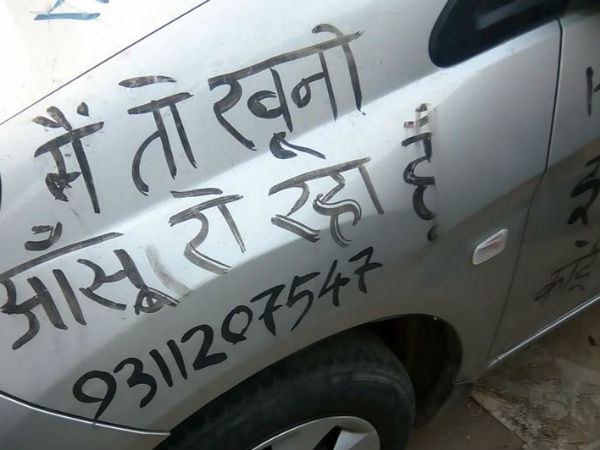 मैं तो खूनो
आँसू रो रहा हूँ
9311207547